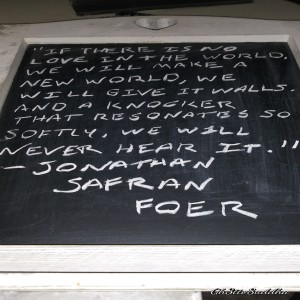 "IF THERE IS NO
LOVE IN THE WORLD,
WE WILL MAKE A
NEW WORLD, WE
WILL GIVE IT WALLS.
AND A KNOCKER
THAT RESONATES SO
SOFTLY, WE WILL
NEVER HEAR IT."
- JONATHAN
SAFRAN
FOER